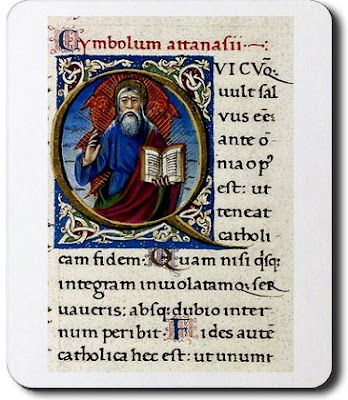 Cymbolum attanasii:
QVICVQ̃
vult sal
vus eē:
ante ō
nia op⁹
est: ut
teneat
catholi
cam fidem: Quam nisi qsq:
integram inuiolatamq: ser
uaueris: absq: dubio inter
num peribit: Fides autē
catholica hec est: ut unum